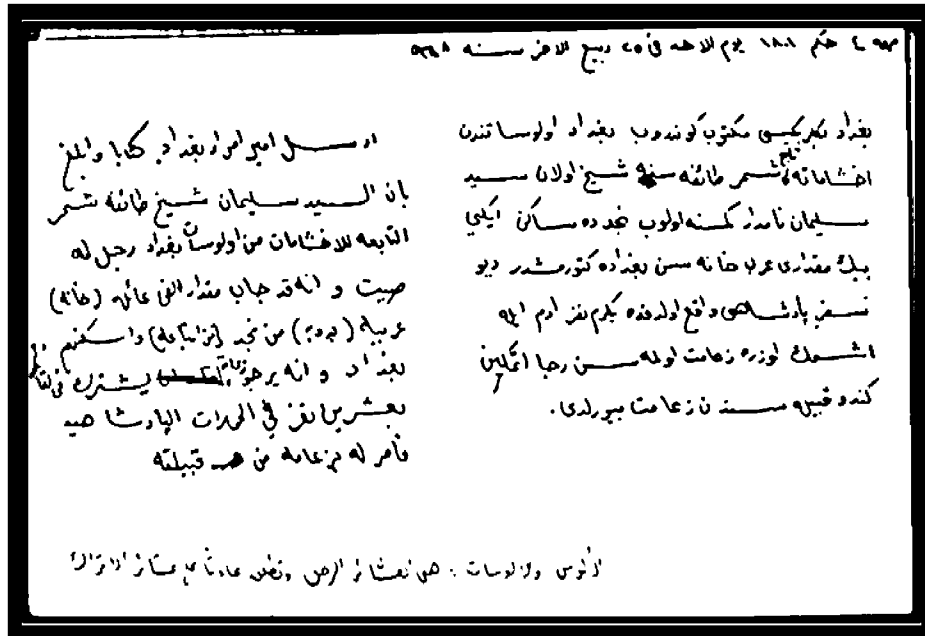 حكم ١٨٠١ يوم الاحد في ٢٥ ربيع الاخر سنه ٩٦٨
بغداد بكلربكيسى مكتوب كوندروب بغداد اولوساتندن
اخشاماته تابع شمر طائفه سنه شيخ اولان سيد
سليمان نامدار كمسنه اولوب نجدده ساكن ايكى
بيك مقدارى عرب خانه سن بغداده كتورمشدر ديو
سفر پادشاهى واقع اولدقده يكرمى نفر ادم ايله
اشمك اوزره زعامت اولمه سن رجا اتمكين
كندو قبيله سندن زعامت بيورلدى.
ارسل امير امراء بغداد كتابا وابلغ
بان السيد سليمان شيخ طائفة شمر
التابعه للاخشامات من اولوسات بغداد رجل له
صيت و انه قد جاب مقدار الفى عائله (خانه)
عربيه (بدويه) من نجد واسكنهم
بغداد و انه يرجو يشترك
بعشرين نفر في الحملات الپادشاهيه
فأمر له بزعامه من قبيلته
الوس والاولوسات : هي العشائر الرحل وتطلق عادتاً على عشائر الاتراك